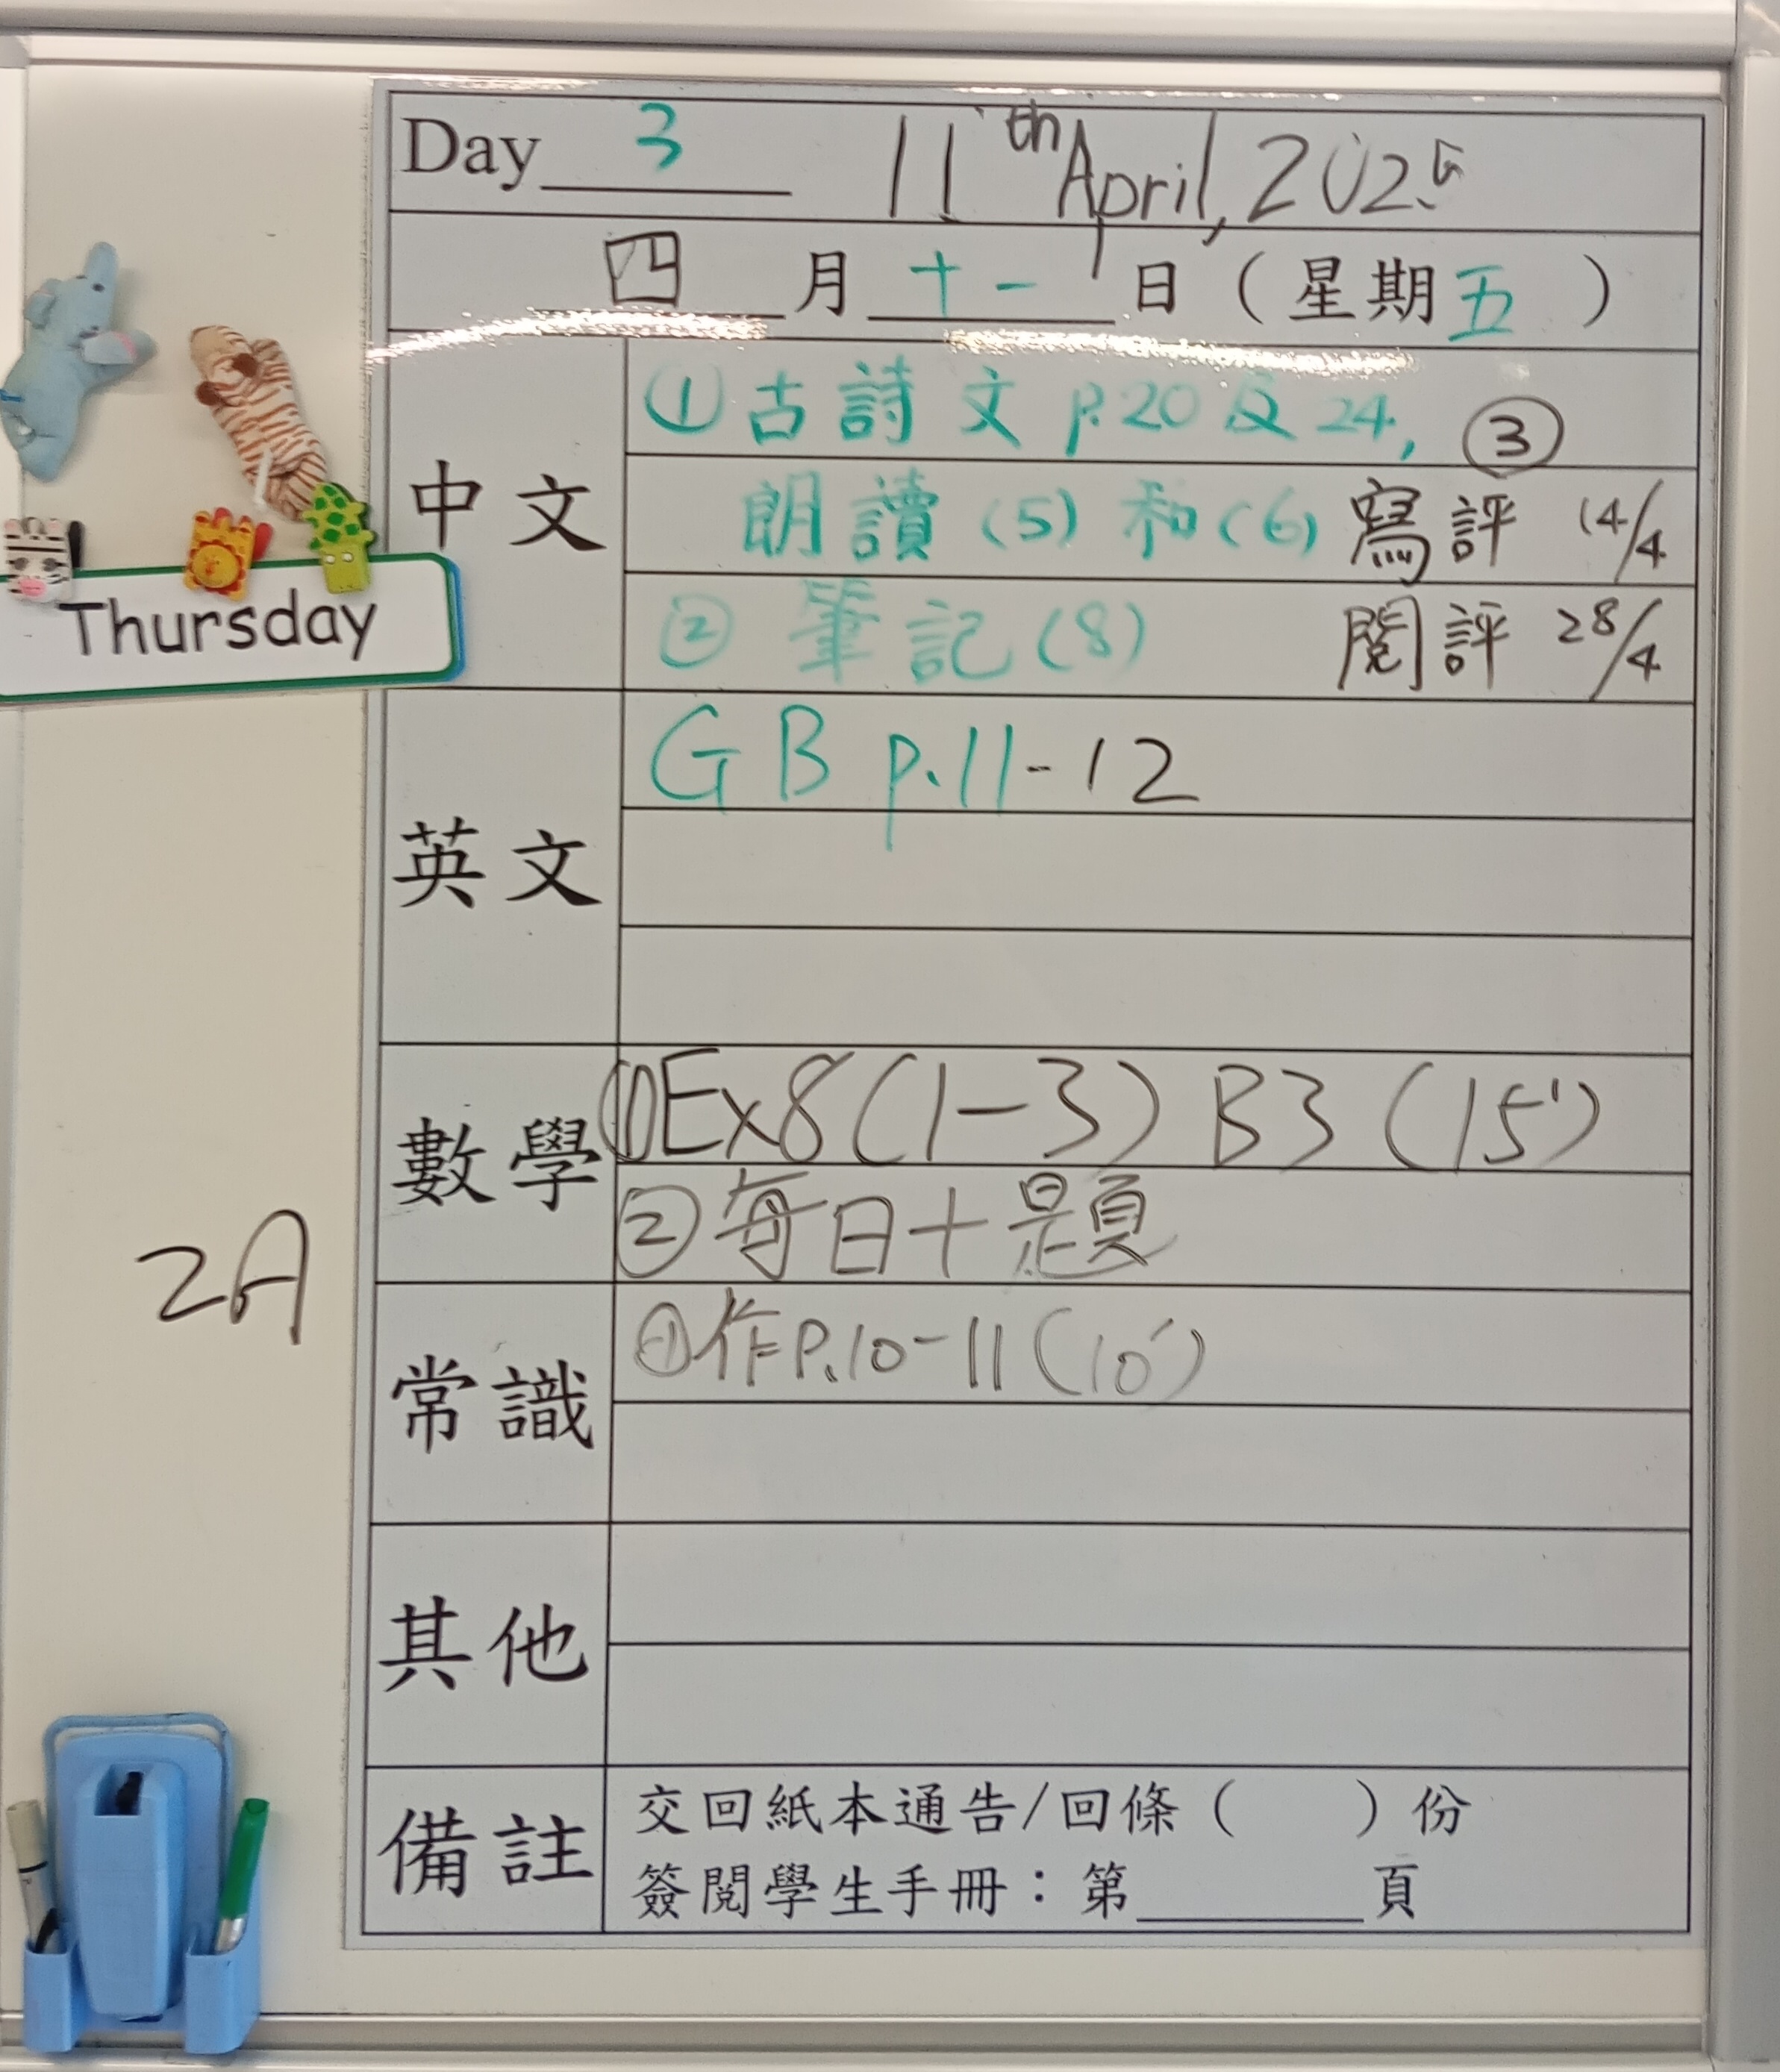 Day 3 11th April, 2025
四 月 十一 日 ( 星期五 )
中文
① 古詩文 p.20 及 24, ③
朗讀 (5) 和 (6) 寫評 14/4
② 筆記 (8) 閱評 28/4
Thursday
英文
GB p.11-12
數學
① Ex8 (1-3) B3 (15')
② 每日十題
2A
常識
① 作 P.10-11 (10')
其他
備註
交回紙本通告/回條 ( ) 份
簽閱學生手冊：第______頁